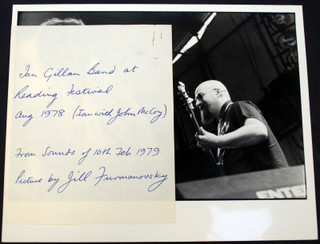 Ian Gillan Band at
Reading Festival
Aug 1978 (Ian with John McCoy)
From Sounds of 10th Feb 1979
Picture by Jill Furmanovsky
ENTE